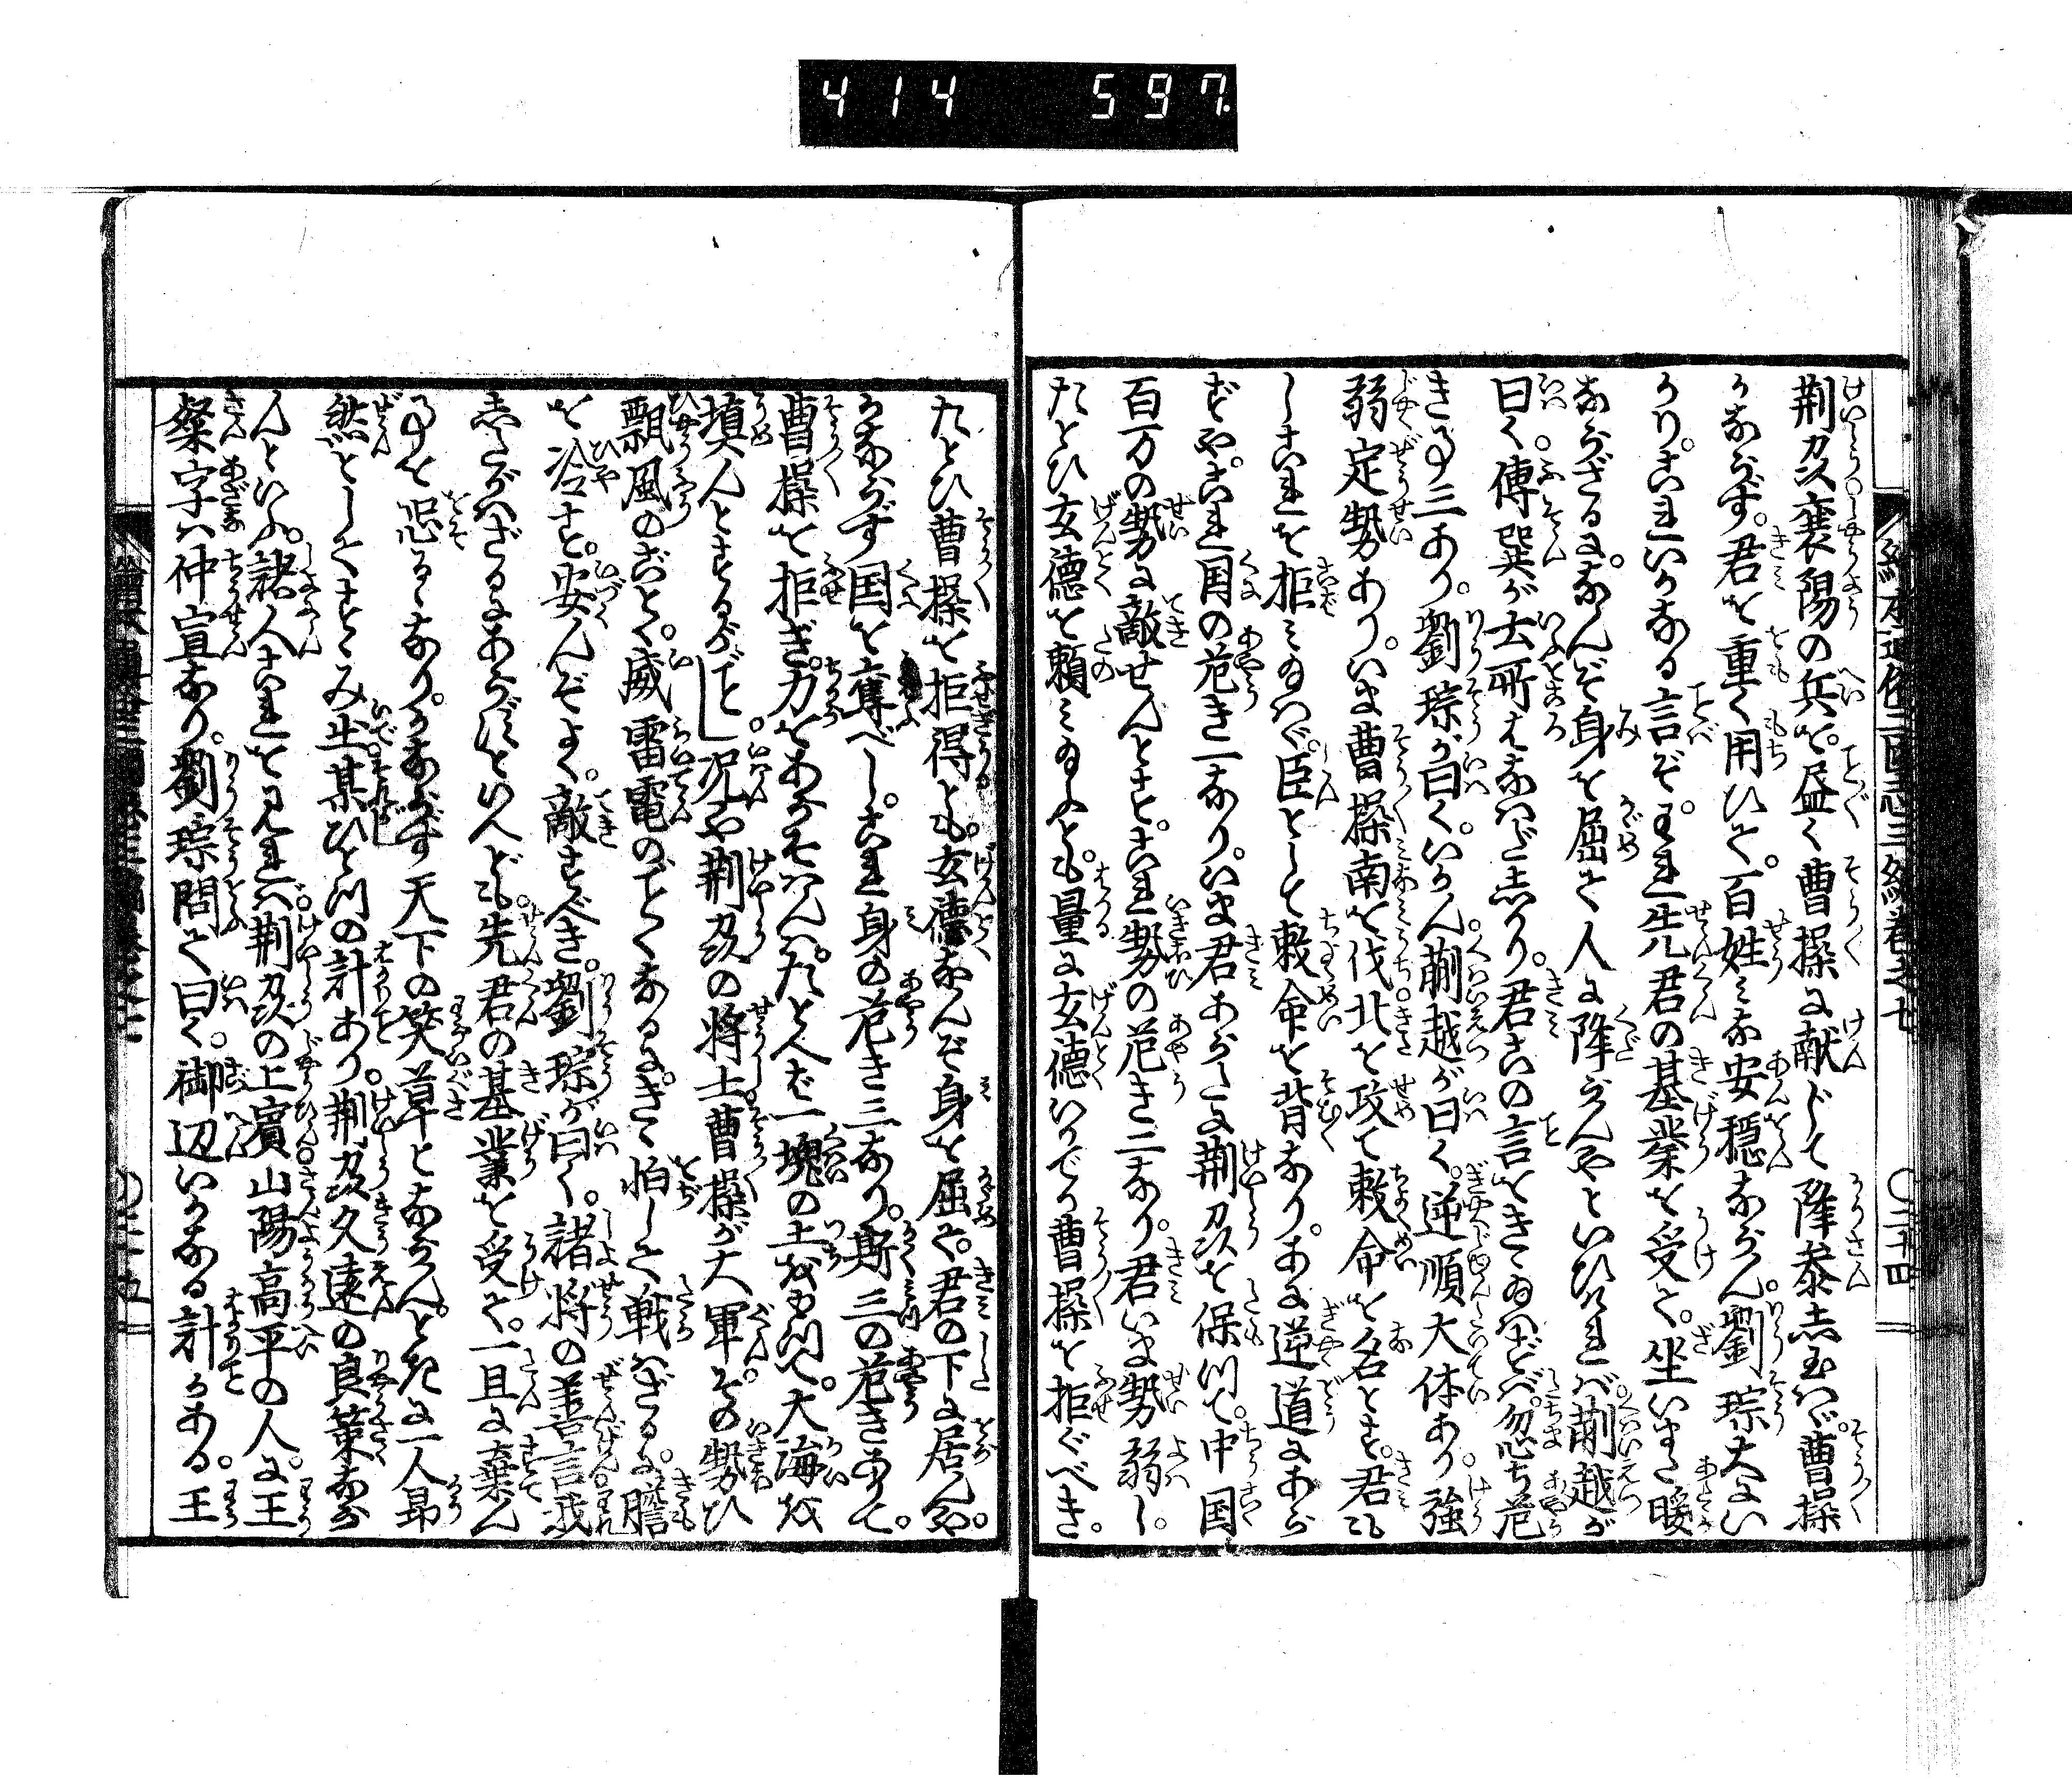 414 597
絵本通俗三国志三編巻之七 〇三十四
荆州襄陽の兵を。尽く曹操に献じて降参し玉はゞ。曹操
かならず。君を重く用ひて。百姓みな安穏ならん。劉琮大にい
かり。これいかなる言ぞ。われ先君の基業を受て。坐いまだ暖
ならざるに。なんぞ身を屈て人に降らんやといひければ。蒯越が
曰く。傅巽が云所はなはだ志れり。君この言をきゝ玉はずんば。忽ち危
き事三あり。劉琮が曰く。いかん。蒯越が曰く。逆順大体あり強
弱定勢あり。いま曹操南を伐北を攻て勅命を名とす。君も
しこれを拒み玉はゞ。臣として勅命を背なり。あに逆道にあら
ずや。これ国の危き一なり。いま君あらたに荆州を保つて。中国
百万の勢に敵せんとす。これ勢の危き二なり。君いま勢弱し。
たとひ玄徳を頼み玉ふとも。量に玄徳いかでか曹操を拒ぐべき。
たとひ曹操を拒得とも。玄徳なんぞ身を屈て。君の下に居んや。
かならず国を奪べし。これ身の危き三なり。斯三の危きありて。
曹操を拒ぎ。力をあらそはんは。たとへば一塊の土をもつて。大海を
填んとするがごとし。况や荆州の将士曹操が大軍。その勢ひ
飄風のごとく。威雷電のごとくなるにきゝ怕して戦はざるに。膽
を冷す。安んぞよく。敵すべき。劉琮が曰く。諸将の善言我
志たがはざるにあらずといへども。先君の基業を受て。一旦に棄ん
事を忍るゝなり。かならず天下の笑草とならん。ときに一人昂
然としてすゝみ出某ひとつの計あり。荆州久遠の良策なら
んといふ。諸人これを見れば。荆州の上賓山陽高平の人に。王
粲字は仲宣なり。劉琮問て曰く。御辺いかなる計かある。王